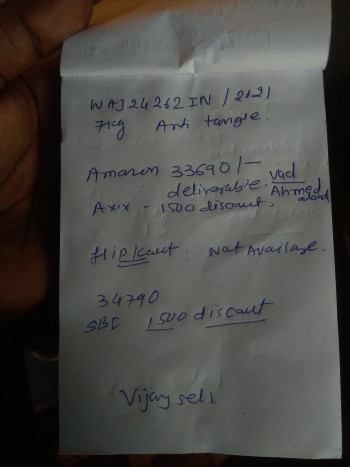 WAJ24262IN/2021
7kg Anti tangle.
Amazon 33690/-
deliverable. Vad
Ahmed
abad
Axix - 1500 discount.
flipkart : Not Available.
34790
SBI 1500 discount
Vijay sels.